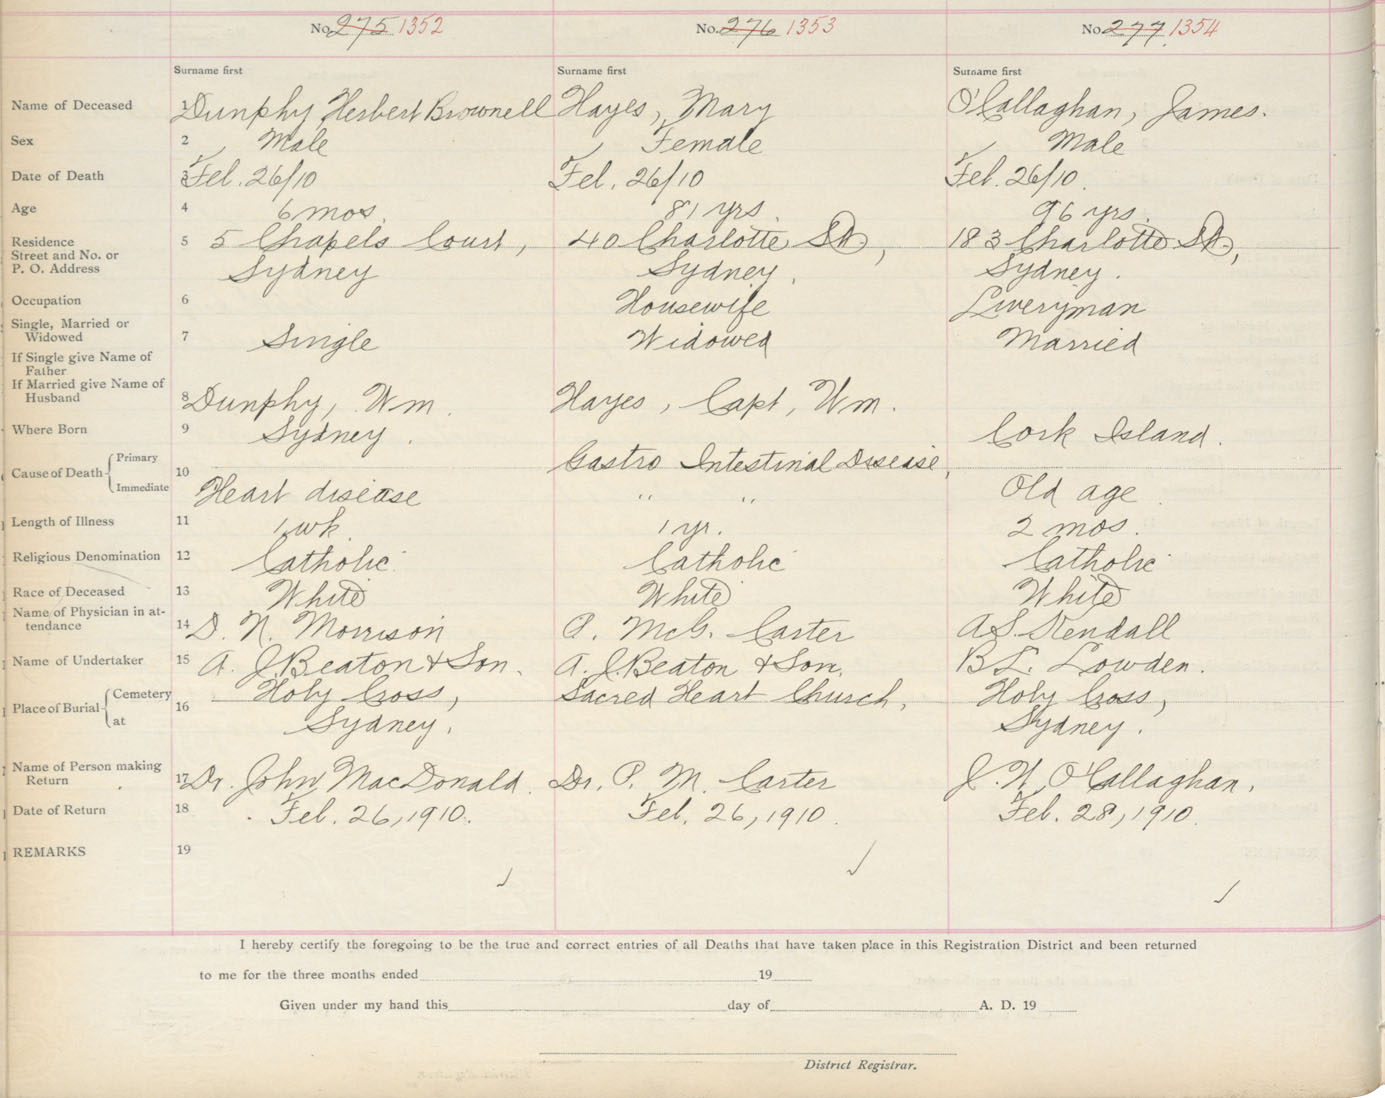 No. 275 1352 No. 276 1353 No. 277 1354
Surname first Surname first Surname first
Name of Deceased 1 Dunphy Herbert Brownell Hayes, Mary O'Callaghan, James.
Sex 2 Male Female Male
Date of Death 3 Feb. 26/10 Feb. 26/10 Feb. 26/10.
Age 4 6 mos. 81 yrs. 96 yrs.
Residence 5 5 Chapels Court, 40 Charlotte St., 183 Charlotte St.,
Street and No. or
P. O. Address Sydney Sydney. Sydney.
Occupation 6 Housewife Liveryman
Single, Married or
Widowed 7 Single Widowed Married
If Single give Name of
Father
If Married give Name of
Husband 8 Dunphy, Wm. Hayes, Capt, Wm.
Where Born 9 Sydney. Cork Island.
Cause of Death Primary 10 Gastro Intestinal Disease,
Immediate Heart disease " " Old age.
Length of Illness 11 1 wk 1 yr. 2 mos.
Religious Denomination 12 Catholic Catholic Catholic
Race of Deceased 13 White White White
Name of Physician in at-
tendance 14 D. N. Morrison P. McG. Carter A S. Kendall
Name of Undertaker 15 A. J. Beaton & Son. A. J. Beaton & Son. B L. Lowden.
Place of Burial Cemetery 16 Holy Cross, Sacred Heart Church, Holy Cross,
at Sydney. Sydney.
Name of Person making
Return 17 Dr. John MacDonald. Dr. P. M. Carter J. W. O'Callaghan.
Date of Return 18 Feb. 26, 1910. Feb. 26, 1910. Feb. 28, 1910.
REMARKS 19
I hereby certify the foregoing to be the true and correct entries of all Deaths that have taken place in this Registration District and been returned
to me for the three months ended 19
Given under my hand this day of A. D. 19
District Registrar.